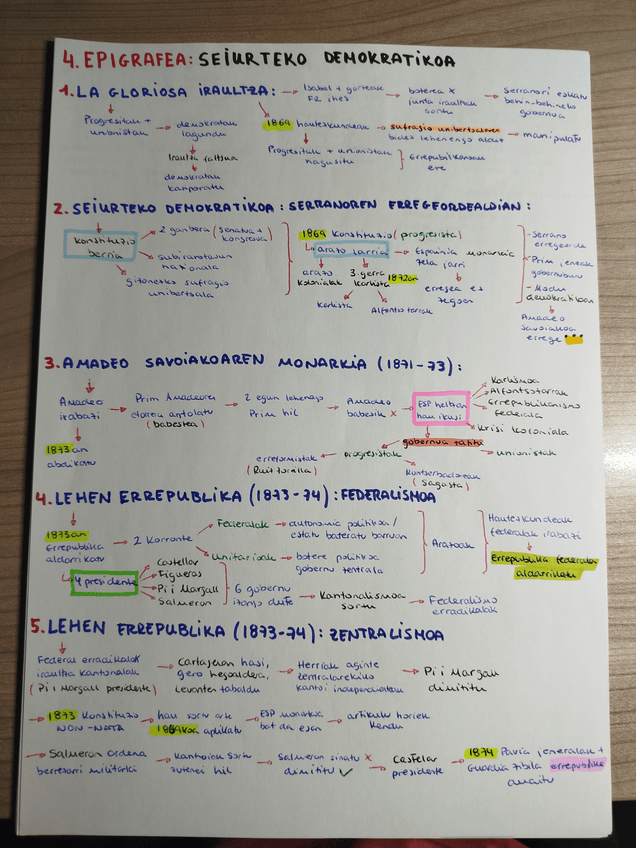 4. EPIGRAFEA: SEIURTEKO DEMOKRATIKOA
1. LA GLORIOSA IRAULTZA: → Isabel + gorteak → boterea x → Serranori eskatu
FR ihes junta iraultzak behin-behineko
sortu gobernua
Progresistak + → demokratak
unionistak lagundu
Iraultza faltsua
demokratak
kanporatu
1869 hauteskundeak → sufragio unibertsalaren → manipulatu
bidez lehenengo aldiz
Progresistak + unionistak
nagusitu
Errepublikanoak
ere
2. SEIURTEKO DEMOKRATIKOA: SERRANOREN ERREGEORDEALDIAN:
konstituzio
berria
2 ganbera (senatua +
kongresua)
subiranotasun
nazionala
gizonezko sufragio
unibertsala
1869 Konstituzio (progresista)
arazo larria → Espainia monarkia
zela jarri
arazo
kolonialak
3. gerra
karlista
1872an
Karlista
Alfontsotarrak
erregea ez
zegoen
- Serrano
erregeorde
- Prim jeneralak
gobernuburu
- Modu
demokratikoan
Amadeo
Savoiakoa
errege
3. AMADEO SAVOIAKOAREN MONARKIA (1871-73):
Amadeo → Prim Amadeoren → 2 egun lehenago → Amadeo → ESP helburu
irabazi etorrera antolatu Prim hil babesik x hau ikusi
(babeslea)
1873an
abdikatu
Karlismoa
Alfontsotarrak
Errepublikanismo
federala
Krisi koloniala
gobernua zatitu
erreformistak progresistak unionistak
(Ruiz Zorrilla)
Kontserbadoreak
(Sagasta)
4. LEHEN ERREPUBLIKA (1873-74): FEDERALISMOA
1873an
Errepublika
aldarrikatu
→ 2 Korronte
Federalak → autonomia politikoa /
estatu bateratu barruan
Unitarioak → botere politikoa
gobernu zentrala
Arazoak
Hauteskundeak
federalak irabazi
Errepublika federala
aldarrikatu
4 presidente
Castellar
Figueras
Pi i Margall
Salmeron
6 gobernu
izango dute
→ Kantonalismoa
sortu
→ Federalismo
erradikalak
5. LEHEN ERREPUBLIKA (1873-74): ZENTRALISMOA
Federal erradikalak → Cartagenan hasi, → Herriak aginte → Pi i Margall
iraultza kantonalak gero hegoaldera, zentralarekiko dimititu
(Pi i Margall presidente) Levantera zabaldu kantoi independenteak
→ 1873 Konstituzio → hau sortu arte → ESP monarkia → artikulu horiek
NON-NATA 1869koa aplikatu bat da esan kendu
→ Salmeron ordena → Kantoiak sortu → Salmeron sinatu x → Castelar → 1874 Pavia jeneralak +
berrezarri militarki zutenei hil dimititu ✓ presidente Guardia Zibila errepublika
amaitu